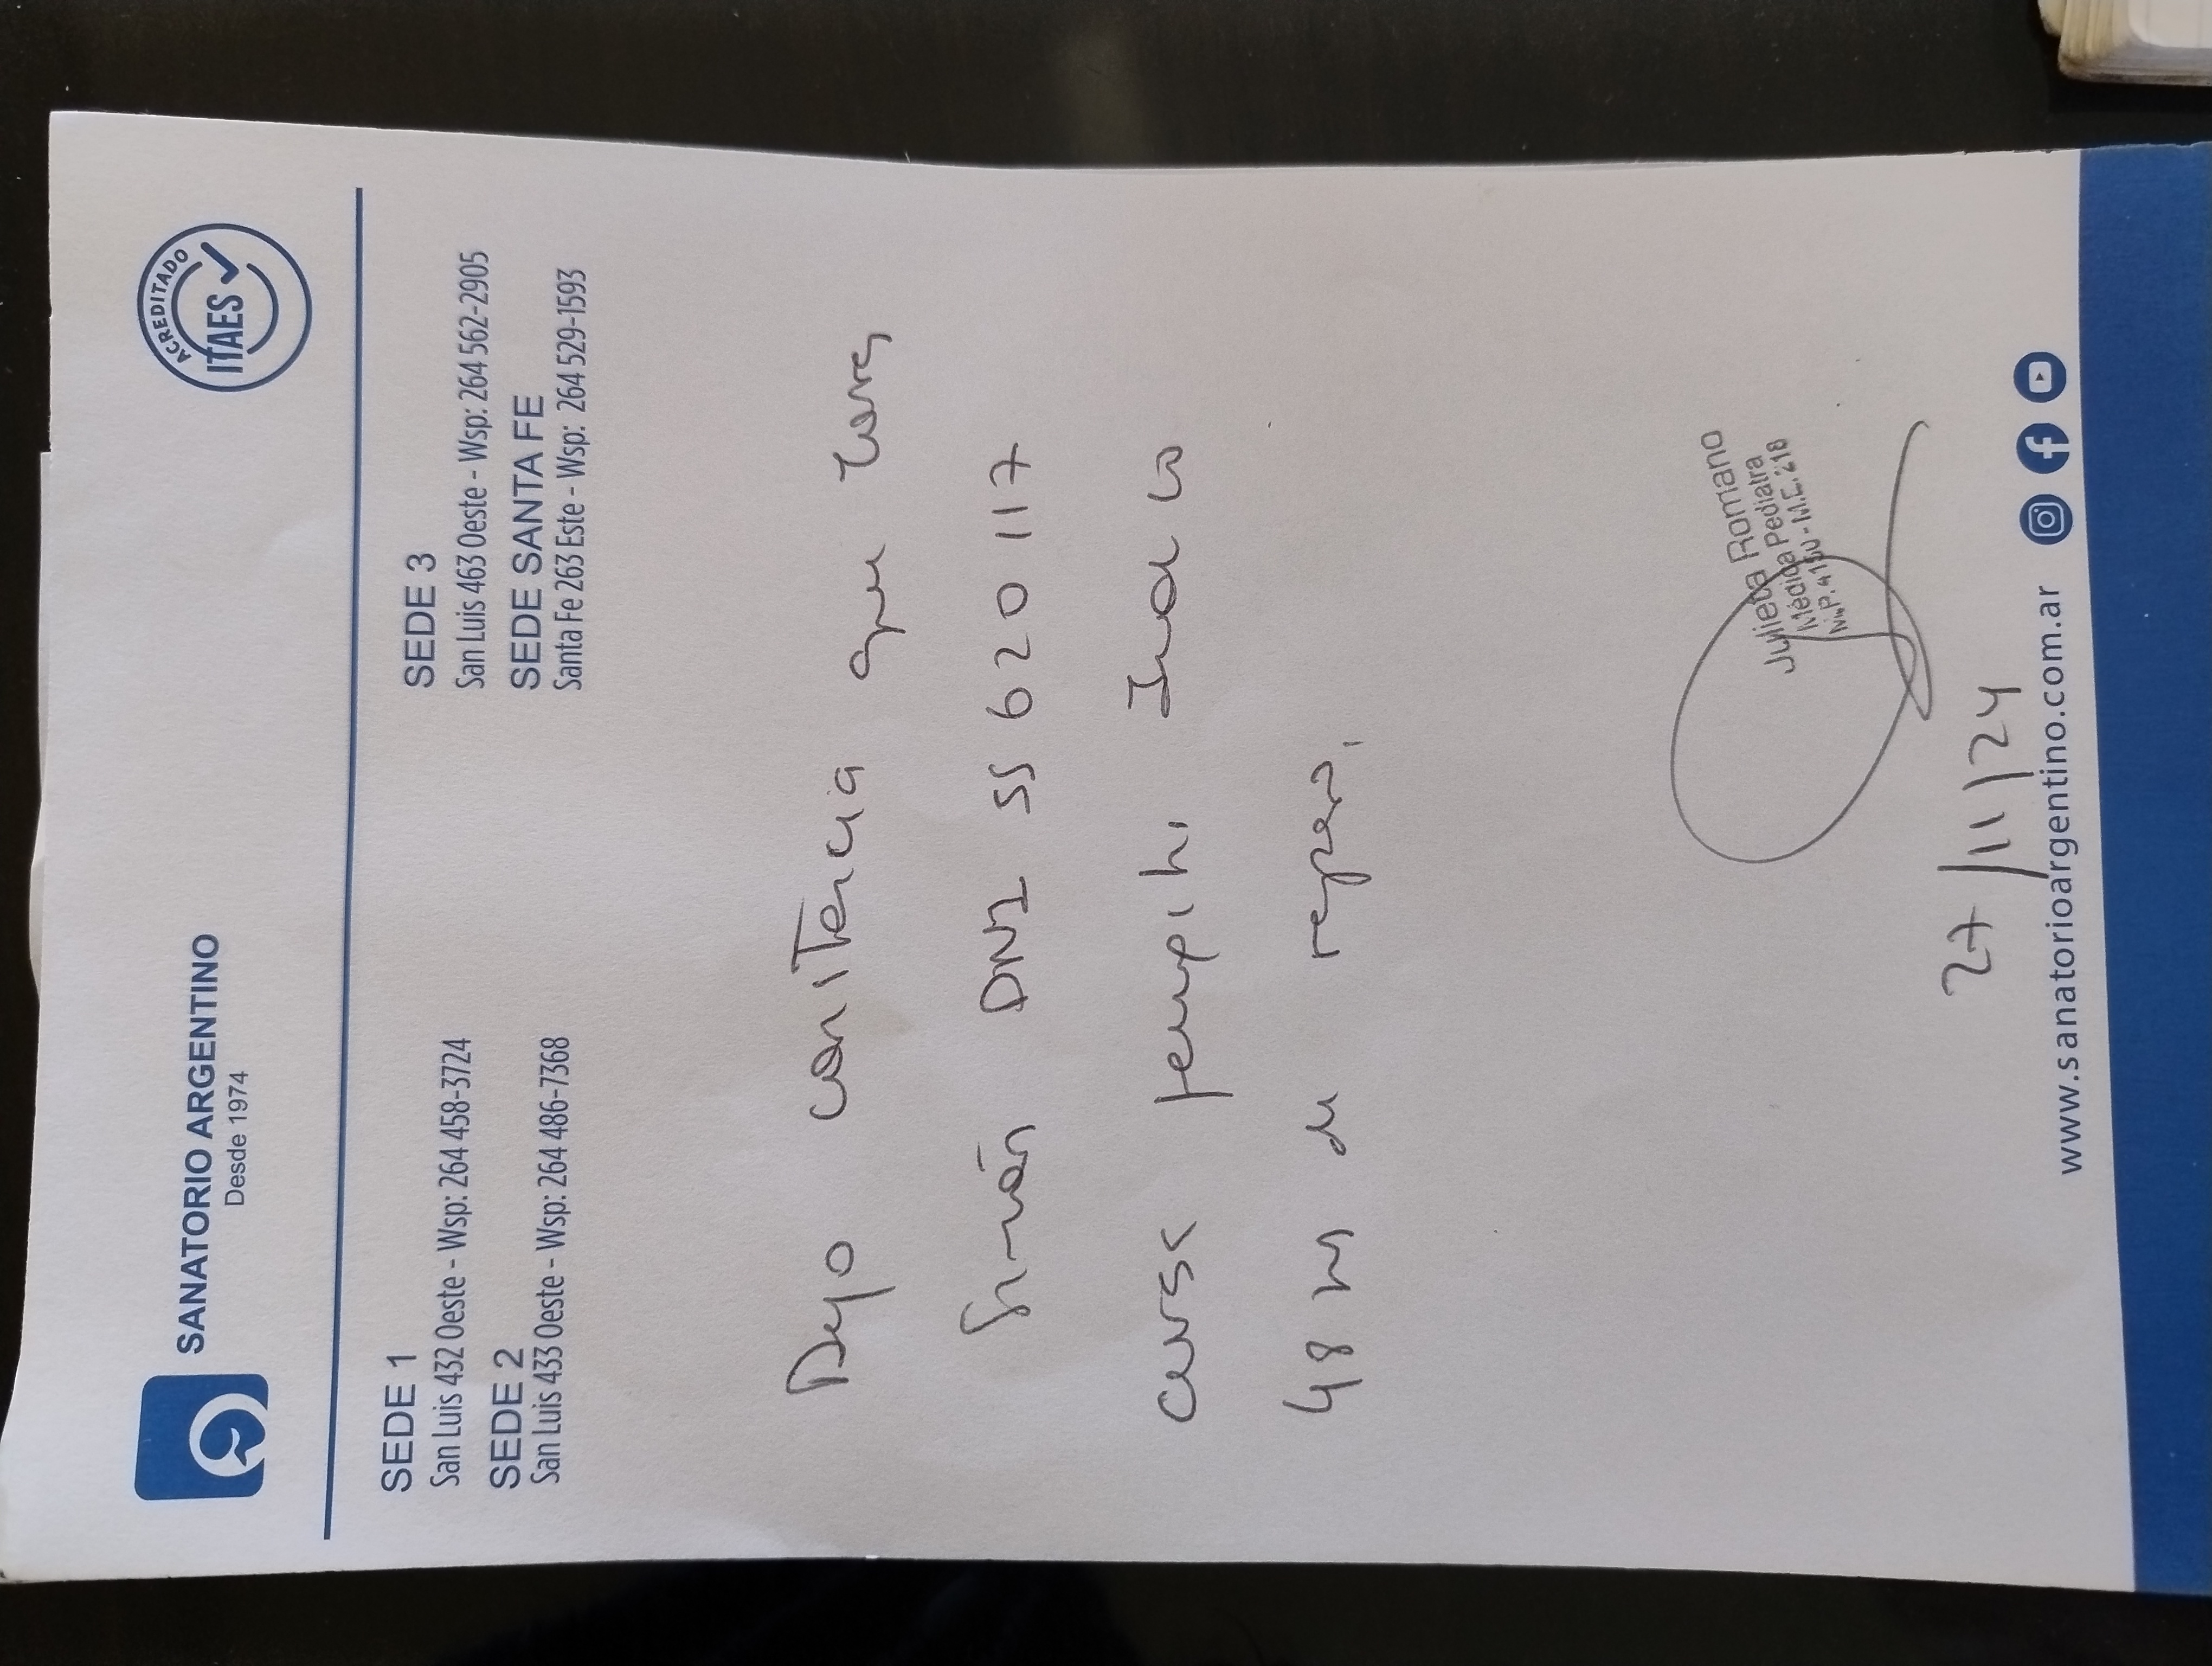 SANATORIO ARGENTINO
Desde 1974
ACREDITADO
ITAES
SEDE 1
San Luis 432 Oeste - Wsp: 264 458-3724
SEDE 2
San Luis 433 Oeste - Wsp: 264 486-7368
SEDE 3
San Luis 463 Oeste - Wsp: 264 562-2905
SEDE SANTA FE
Santa Fe 263 Este - Wsp: 264 529-1593
Dejo constancia que
Simón DNI 55 620 117
cursa Indico
48 hs de reposo.
Julieta Romano
Médica Pediatra
27/11/24
www.sanatorioargentino.com.ar